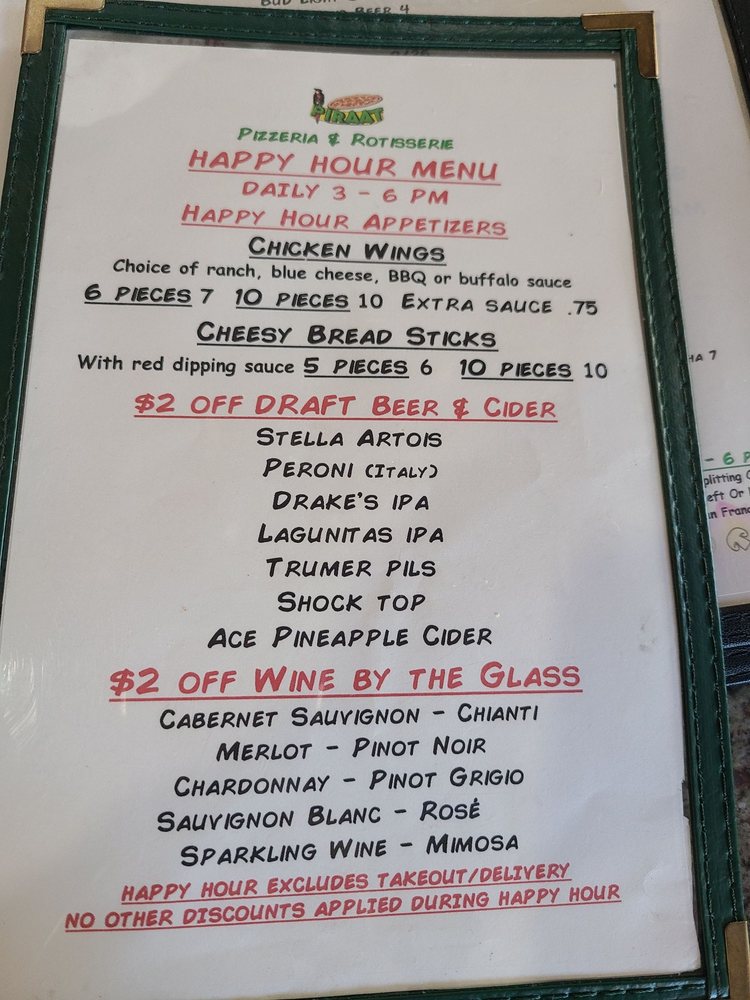 BEER 4
PIRAAT
PIZZERIA & ROTISSERIE
HAPPY HOUR MENU
DAILY 3 - 6 PM
HAPPY HOUR APPETIZERS
CHICKEN WINGS
Choice of ranch, blue cheese, BBQ or buffalo sauce
6 PIECES 7 10 PIECES 10 EXTRA SAUCE .75
CHEESY BREAD STICKS
With red dipping sauce 5 PIECES 6 10 PIECES 10
$2 OFF DRAFT BEER & CIDER
STELLA ARTOIS
PERONI (ITALY)
DRAKE'S IPA
LAGUNITAS IPA
TRUMER PILS
SHOCK TOP
ACE PINEAPPLE CIDER
$2 OFF WINE BY THE GLASS
CABERNET SAUVIGNON - CHIANTI
MERLOT - PINOT NOIR
CHARDONNAY - PINOT GRIGIO
SAUVIGNON BLANC - ROSÉ
SPARKLING WINE - MIMOSA
HAPPY HOUR EXCLUDES TAKEOUT/DELIVERY
NO OTHER DISCOUNTS APPLIED DURING HAPPY HOUR
HA 7
- 6 P
plitting
eft Or
n Fran